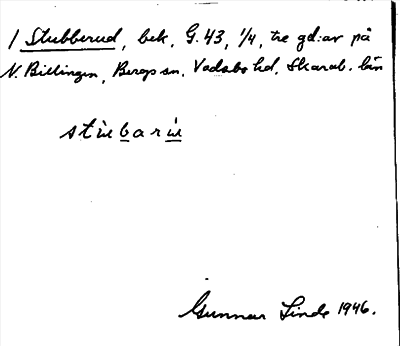 1 Stubberud, bek, G. 43, 1/4, tre gd:ar på
N. Billingen, Bergs sn, Vadsbo hd, Skarab. län
stu̇baru̇
Gunnar Linde 1946.